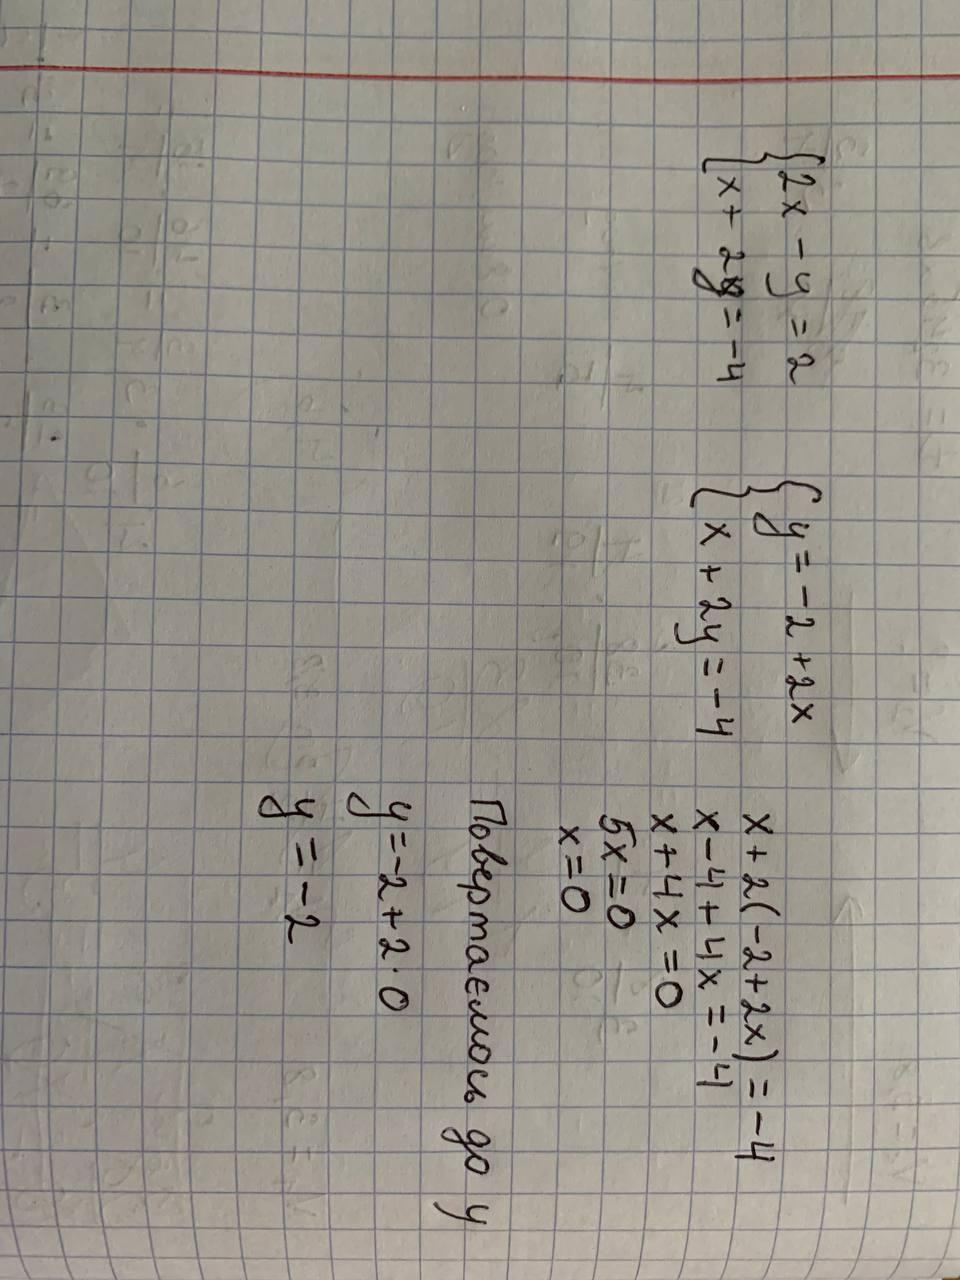 {2x - y = 2
{x + 2y = -4
{y = -2 + 2x
{x + 2y = -4
x + 2(-2 + 2x) = -4
x - 4 + 4x = -4
x + 4x = 0
5x = 0
x = 0
Повертаємось до y
y = -2 + 2 · 0
y = -2